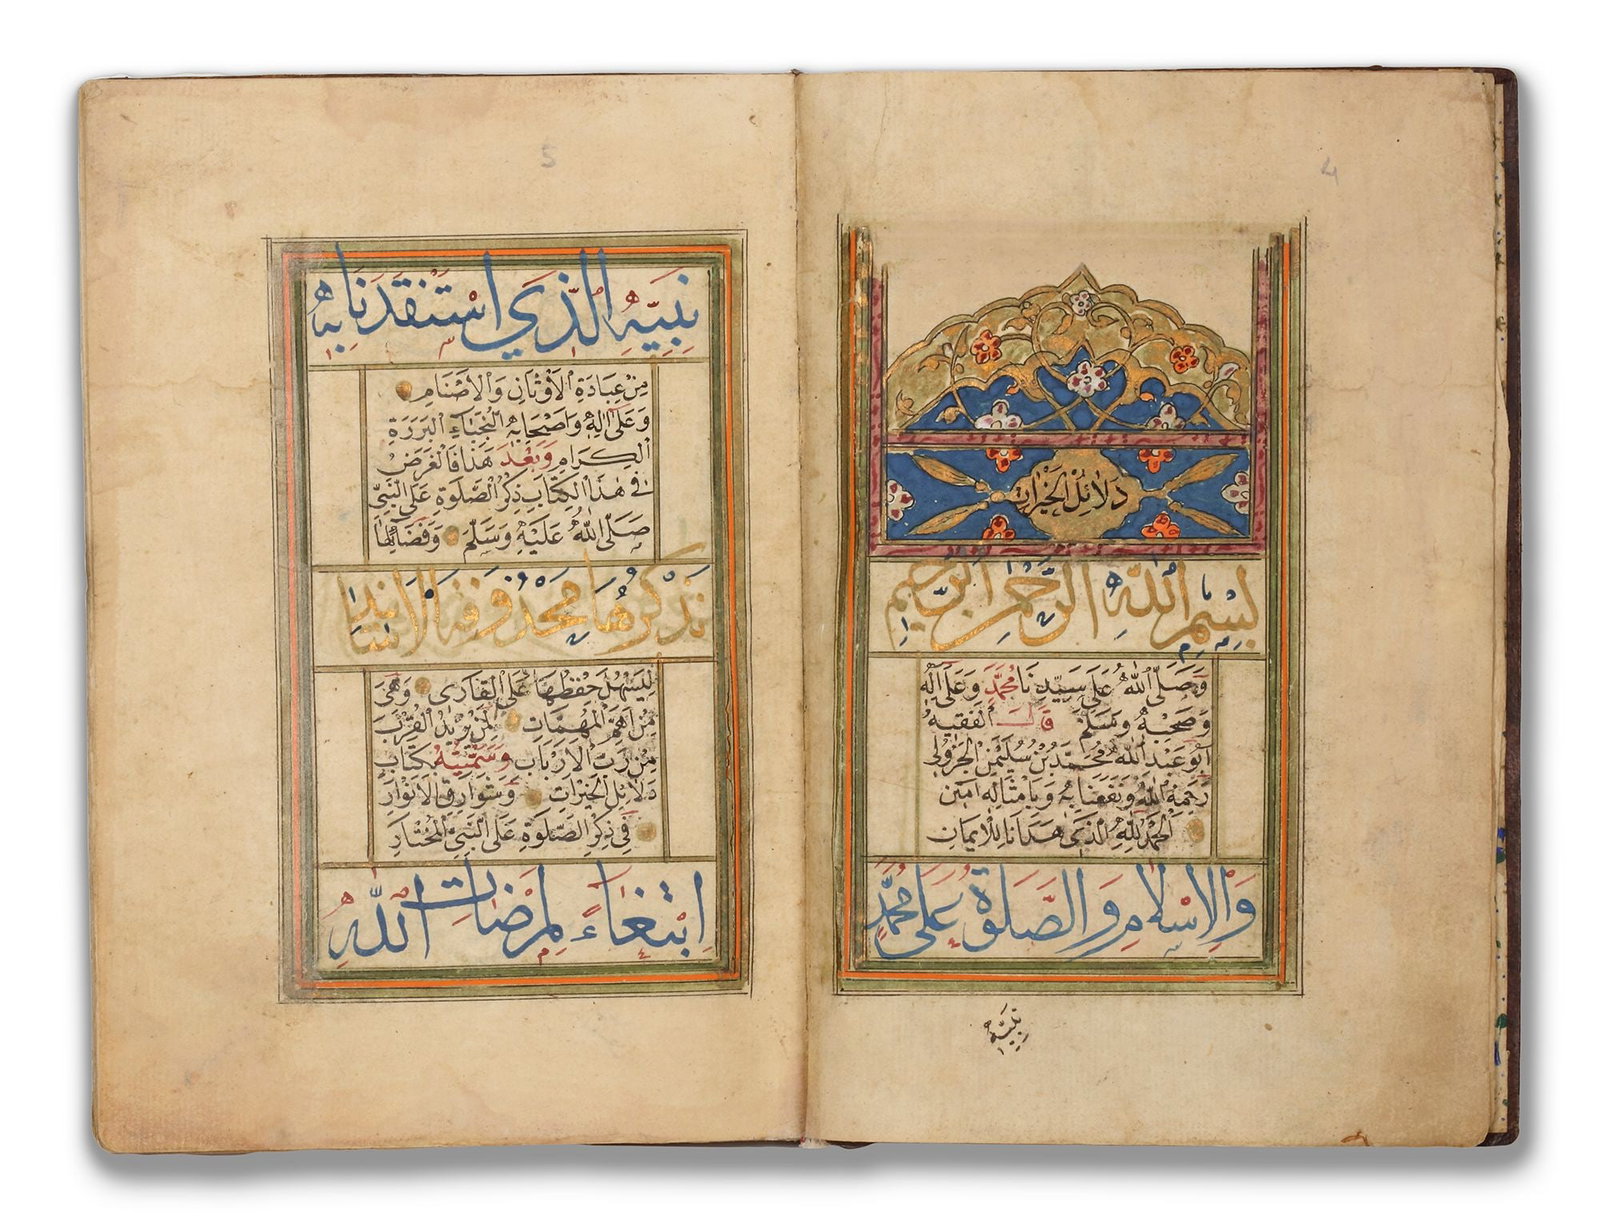 4
دَلَائِلُ الْخَيْرَاتِ
بِسْمِ اللّٰهِ الرَّحْمٰنِ الرَّحِيْمِ
وَصَلَّى اللّٰهُ عَلَى سَيِّدِنَا مُحَمَّدٍ وَعَلَى اٰلِهٖ
وَصَحْبِهٖ وَسَلَّمَ قَالَ الْفَقِيْهُ
اَبُو عَبْدِ اللّٰهِ مُحَمَّدُ بْنُ سُلَيْمٰنَ الْجَزُولِي
رَحِمَهُ اللّٰهُ وَنَفَعَنَا بِهٖ وَبِاَمْثَالِهٖ اٰمِيْن
اَلْحَمْدُ لِلّٰهِ الَّذِي هَدَانَا لِلْاِيْمَانِ
وَالْاِسْلَامِ وَالصَّلٰوةُ عَلَى مُحَمَّدٍ
نَبِيِّهٖ
5
نَبِيِّهِ الَّذِي اسْتَنْقَذَنَا بِهٖ
مِنْ عِبَادَةِ الْاَوْثَانِ وَالْاَصْنَامِ
وَعَلَى اٰلِهٖ وَاَصْحَابِهِ النُّجَبَاءِ الْبَرَرَةِ
الْكِرَامِ وَبَعْدَ هٰذَا فَالْغَرَضُ
فِي هٰذَا الْكِتَابِ ذِكْرُ الصَّلٰوةِ عَلَى النَّبِيِّ
صَلَّى اللّٰهُ عَلَيْهِ وَسَلَّمَ وَفَضَائِلِهَا
نَذْكُرُهَا مَحْذُوفَةَ الْاَسَانِيْدِ
لِيَسْهُلَ حِفْظُهَا عَلَى الْقَارِئِ وَهِيَ
مِنْ اَهَمِّ الْمُهِمَّاتِ لِمَنْ يُرِيْدُ الْقُرْبَ
مِنْ رَبِّ الْاَرْبَابِ وَسَمَّيْتُهُ كِتَابَ
دَلَائِلِ الْخَيْرَاتِ وَشَوَارِقِ الْاَنْوَارِ
فِي ذِكْرِ الصَّلٰوةِ عَلَى النَّبِيِّ الْمُخْتَارِ
اِبْتِغَاءً لِمَرْضَاتِ اللّٰهِ